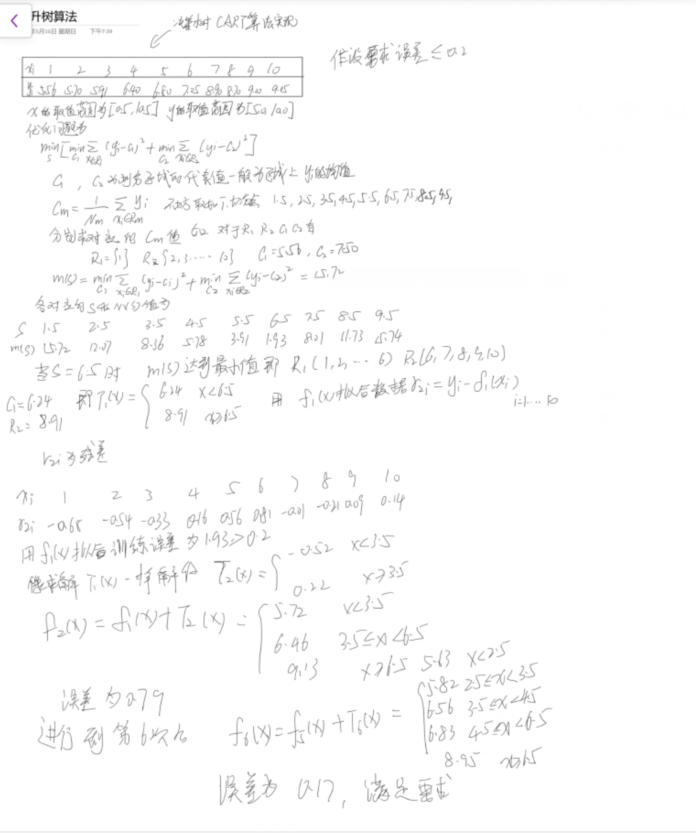 升树算法
下午7:39
CART算法实现
假设要求误差≤0.2
xi 1 2 3 4 5 6 7 8 9 10
5.56 5.70 5.91 6.40 6.80 7.05 8.90 8.70 9.00 9.05
x的取值范围为[0.5,10.5] y的取值范围为[5.0,10.0]
优化问题为
min_s[min_{c1}∑_{xi∈R1}(yi-c1)²+min_{c2}∑_{xi∈R2}(yi-c2)²]
C1, C2为划分区域的代表值一般为区域上yi的均值
Cm=1/Nm ∑_{xi∈Rm} yi 1.5, 2.5, 3.5, 4.5, 5.5, 6.5, 7.5, 8.5, 9.5
分别求对应的Cm值 对于R1 R2 C1 C2有
R1={1} R2{2,3.....10} C1=5.56, C2=7.50
m(s)=min_{c1}∑_{xi∈R1}(yi-ci)²+min_{c2}∑_{xi∈R2}(yi-c2)²=15.72
各对应的S和m(s)值为
S 1.5 2.5 3.5 4.5 5.5 6.5 7.5 8.5 9.5
m(s) 15.72 12.07 8.36 5.78 3.91 1.93 8.01 11.73 15.74
当S=6.5时 m(s)达到最小值即 R1(1,2,...6) R2(6,7,8,9,10)
C1=6.24 即T1(x)={6.24 x<6.5 用f1(x)拟合数据r2i=yi-f1(xi)
R2=8.91 8.91 x≥6.5 i=1....10
r2i为残差
xi 1 2 3 4 5 6 7 8 9 10
r2i -0.68 -0.54 -0.33 0.16 0.56 0.81 -0.01 -0.21 0.09 0.14
用f1(x)拟合训练误差为1.93>0.2
像求解T1(x)一样解 T2(x)={-0.52 x<3.5
0.22 x≥3.5
f2(x)=f1(x)+T2(x)={5.72 x<3.5
6.46 3.5≤x<6.5
9.13 x≥6.5
误差为0.79
进行到第6次后 f6(x)=f5(x)+T6(x)={5.63 x<2.5
5.82 2.5≤x<3.5
6.56 3.5≤x<4.5
6.83 4.5≤x<6.5
8.95 x≥6.5
误差为0.17, 满足要求